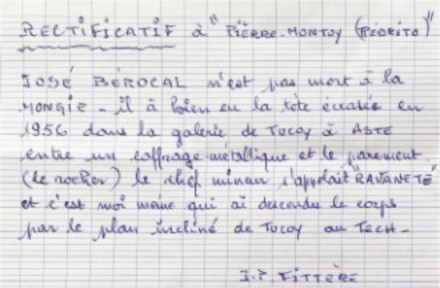 RECTIFICATIF à "PIERRE-MONTOY (PEORITO)"
JOSÉ BÉROCAL n'est pas mort à la
MONGIE - il à bien eu la tête écrasée en
1956 dans la galerie de TUCOY à ASTE
entre un coffrage métallique et le parement
(le rocher) le chef mineur s'appelait "RAVANETE"
et c'est moi même qui ai descendu le corps
par le plan incliné de TUCOY au TECH -
J.P. FITTÈRE